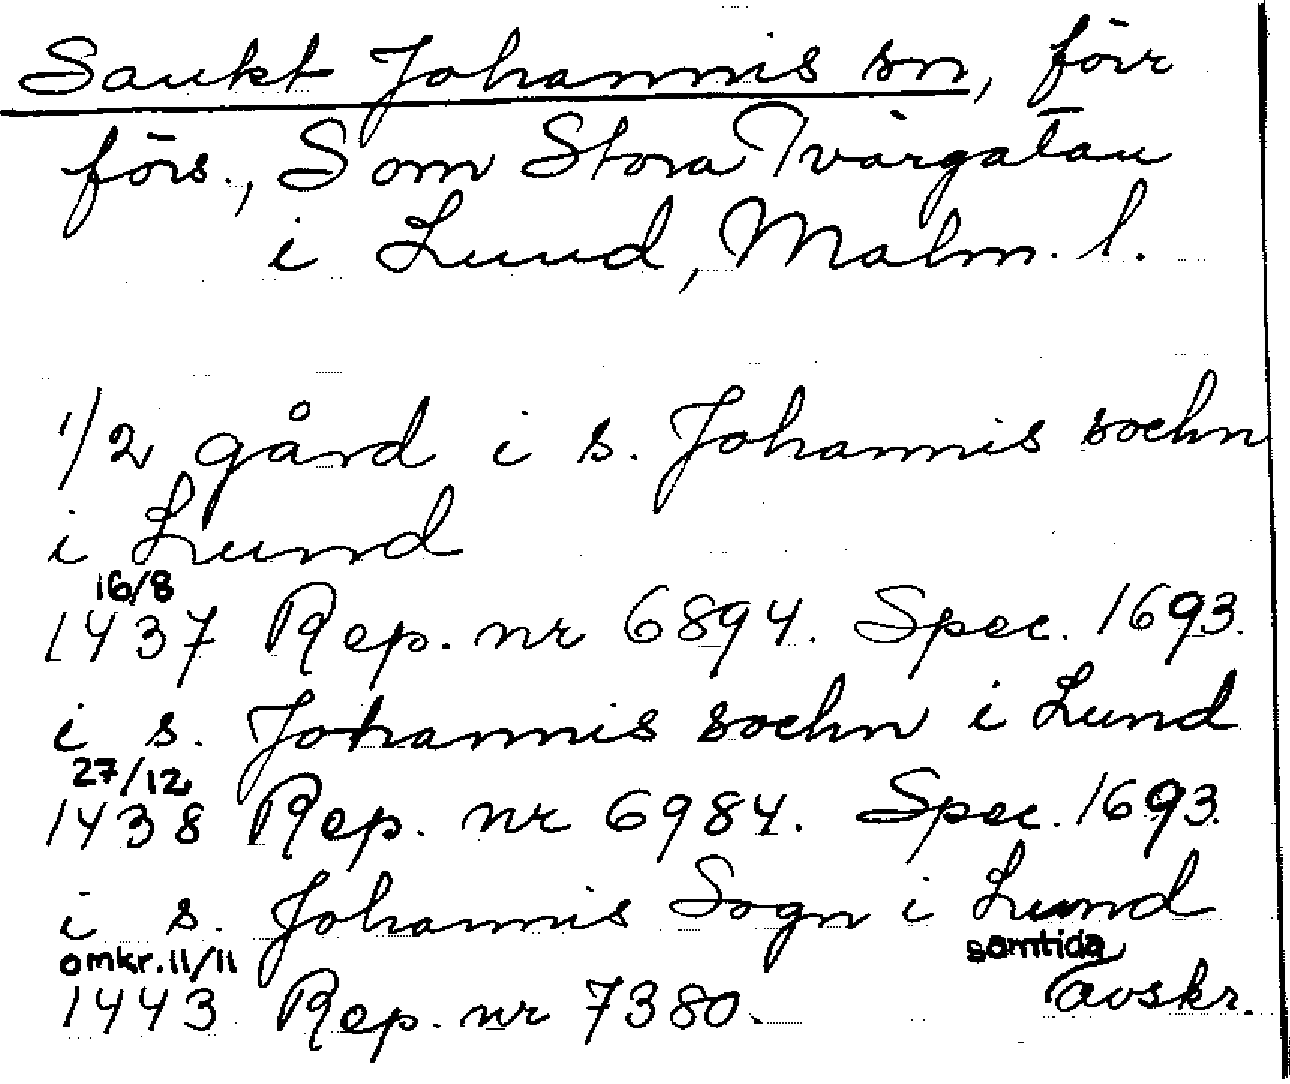 Sankt Johannis sn, förr
förs., Som Stora Tvärgatan
i Lund, Malm. l.
1/2 gård i s. Johannis sochn
i Lund
16/8
1437 Rep. nr 6894. Spec. 1693.
i s. Johannis sochn i Lund
27/12
1438 Rep. nr 6984. Spec. 1693.
i s. Johannis Sogn i Lund
omkr. 11/11 samtida
1443 Rep. nr 7380. avskr.